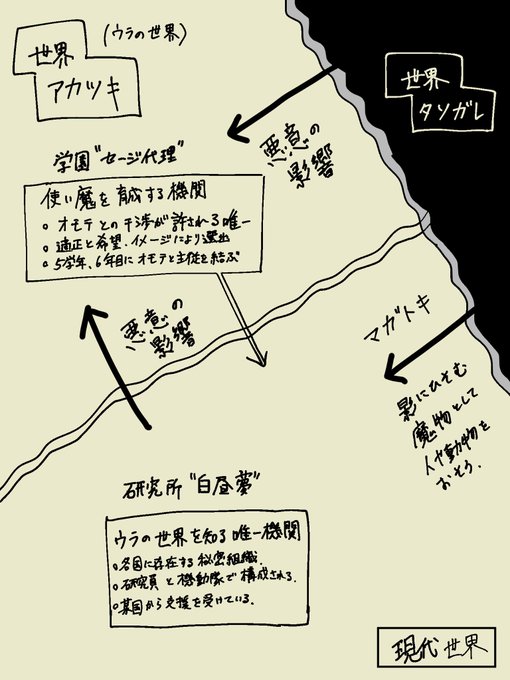 世界
アカツキ
(ウラの世界)
世界
タソガレ
悪意の
影響
学園"セージ代理"
使い魔を育成する機関
○ オモテとの干渉が許される唯一
○ 適正と希望、イメージにより選出
○ 5学年、6年目にオモテと主従を結ぶ
悪意の
影響
マガトキ
影にひそむ
魔物として
人や動物を
おそう.
研究所"白昼夢"
ウラの世界を知る唯一機関
○各国に存在する秘密組織.
○研究員と機動隊で構成される.
○某国から支援を受けている.
現代世界